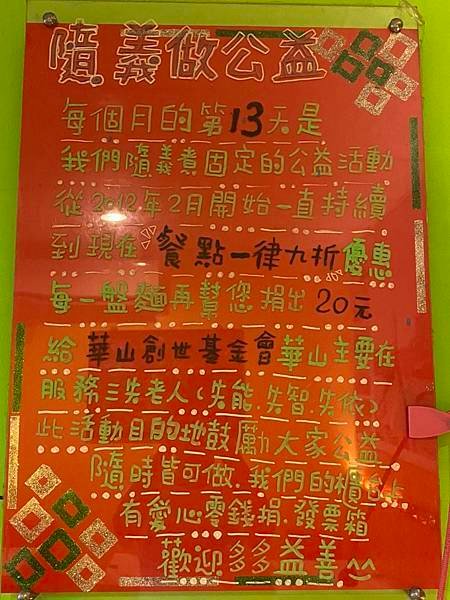 隨義做公益
每個月的第13天是
我們隨義煮固定的公益活動
從2012年2月開始一直持續
到現在餐點一律九折優惠
每一盤麵再幫您捐出20元
給華山創世基金會華山主要在
服務三失老人(失能.失智.失依)
此活動目的地鼓勵大家公益
隨時皆可做.我們的櫃台上
有愛心零錢捐.發票箱
歡迎多多益善